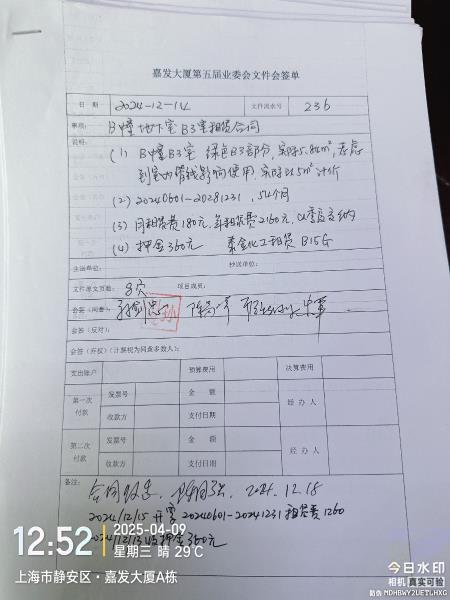 嘉发大厦第五届业委会文件会签单
日期 2024-12-14 文件流水号 236
事项: B幢地下室B3室租赁合同
说明:
(1) B幢B3室 绿色B3部分, 实际5.8㎡, 考虑
到室内管线影响使用, 实际以5㎡计价
(2) 20240601-20281231, 54个月
(3) 月租赁费180元, 年租赁费2160元, 以季度交纳
(4) 押金360元 租赁B15G
主送单位: 抄送单位:
文件原文页数: 8页 项目成员:
会签(同意):
会签(反对):
会签(弃权)(计票视为同查多数人):
支出账户 预算费用 决算费用
第一次付款 发票号 金额 经办人
收款方 支付日期
第二次付款 发票号 金额 经办人
收款方 支付日期
备注:
2024.12.18
2024/12/15 开票 20240601-20241231租赁费1260
2024/12/13收押金360元
12:52
2025-04-09
星期三 晴 29℃
上海市静安区·嘉发大厦A栋
今日水印
相机 真实可验
防伪 MDHBWY2UETLHXG